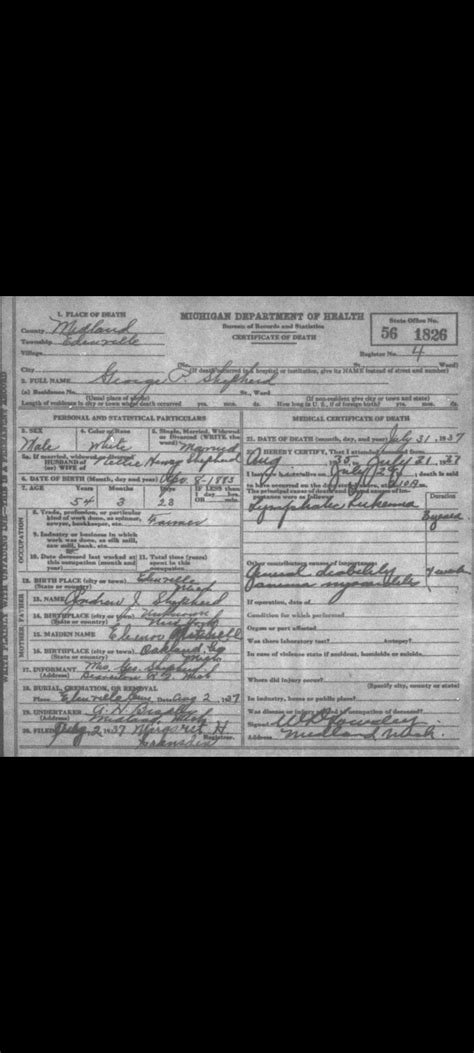 1. PLACE OF DEATH
County Midland
Township Edenville
Village
City
MICHIGAN DEPARTMENT OF HEALTH
Bureau of Records and Statistics
CERTIFICATE OF DEATH
State Office No.
56 1826
Register No. 4
(No. St., Ward)
(If death occurred in a hospital or institution, give its NAME instead of street and number)
2. FULL NAME George P. Shepherd
(a) Residence No. St., Ward
(Usual place of abode) (If non-resident give city or town and state)
Length of residence in city or town where death occurred yrs. mos. ds. How long in U. S., if of foreign birth? yrs. mos. ds.
PERSONAL AND STATISTICAL PARTICULARS
3. SEX 4. Color or Race 5. Single, Married, Widowed or Divorced (WRITE the word)
Male White Married
5a. If married, widowed or divorced
HUSBAND of
(or) WIFE of Nettie Shepherd
6. DATE OF BIRTH (Month, day, and year) 8-1883
7. AGE Years Months Days If LESS than
1 day hrs.
OR min.
54 3 23
OCCUPATION
8. Trade, profession, or particular
kind of work done, as spinner,
sawyer, bookkeeper, etc. Farmer
9. Industry or business in which
work was done, as silk mill,
saw mill, bank, etc.
10. Date deceased last worked at
this occupation (month and
year)
11. Total time (years)
spent in this
occupation
12. BIRTH PLACE (city or town) Edenville
(State or country) Mich
FATHER
13. NAME Andrew J. Shepherd
14. BIRTHPLACE (city or town) Unknown
(State or country) New York
MOTHER
15. MAIDEN NAME Mitchell
16. BIRTHPLACE (city or town) Oakland Co
(State or country) Mich
17. INFORMANT Mrs. Geo. Shepherd
(Address) Beaverton Mich
18. BURIAL, CREMATION, OR REMOVAL
Place Edenville Date Aug 2 1937
19. UNDERTAKER
(Address) Midland, Mich
20. FILED Aug 2 1937 Margaret H.
Registrar.
MEDICAL CERTIFICATE OF DEATH
21. DATE OF DEATH (month, day, and year) July 31 1937
22. I HEREBY CERTIFY, That I attended deceased from
Aug 1935 to July 31 1937
I last saw alive on July 29 death is said
to have occurred on the date stated above, at
The principal cause of death and related causes of importance were as follows:
Duration
Lymphatic Leukemia
Other contributory causes of importance:
General debility
myocarditis
If operation, date of
Condition for which performed
Organ or part affected
Was there laboratory test? Autopsy?
In case of violence state if accident, homicide or suicide.
Where did injury occur?
(Specify city, county or state)
In industry, home or public place?
Was disease or injury related to occupation of deceased?
Signed
Address Midland Mich.